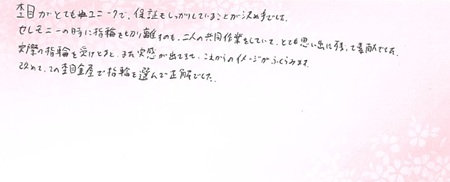 杢目がとてもユニークで、保証もしっかりしていることが決め手でした。
セレモニーの時に指輪をもぎり離すのも、二人の共同作業をしていて、とても思い出に残って素敵でした。
実際の指輪を受けとると、また実感が出てきて、これからのイメージがふくらみます。
改めて、この杢目金屋で指輪を選んで正解でした。